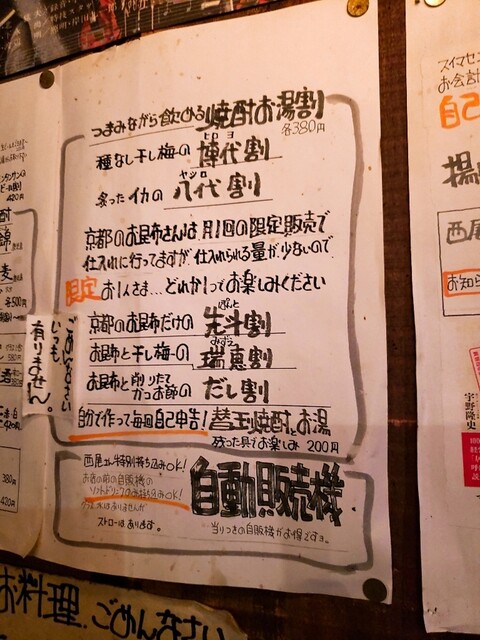 つまみながら飲める焼酎お湯割
各380円
種なし干し梅の 博代割
炙ったイカの 八代割
ヤツロ
京都のお昆布さんは月1回の限定販売で
仕入れに行ってますが仕入れられる量が少ないので
限定 お1人さま…どれか1つでお楽しみください
京都のお昆布だけの 先斗割
ぽんと
お昆布と干し梅の 瑞恵割
お昆布と削りたてかつお節の だし割
自分で作って毎回自己申告! 替玉焼酎お湯
残った具でお楽しみ 200円
西尾さん特別持ち込みOK!
お店の前の自販機の
ソフトドリンクのお持ち込みOK!
ストローはあります。
自動販売機
当りつきの自販機がお得ですョ。
ごめんなさい
いつも
有りません。
お料理、ごめんなさい
各500円
420円
380円
420円
スイマセン
お会計
自己
揚
西尾
お知ら
宇野隆史